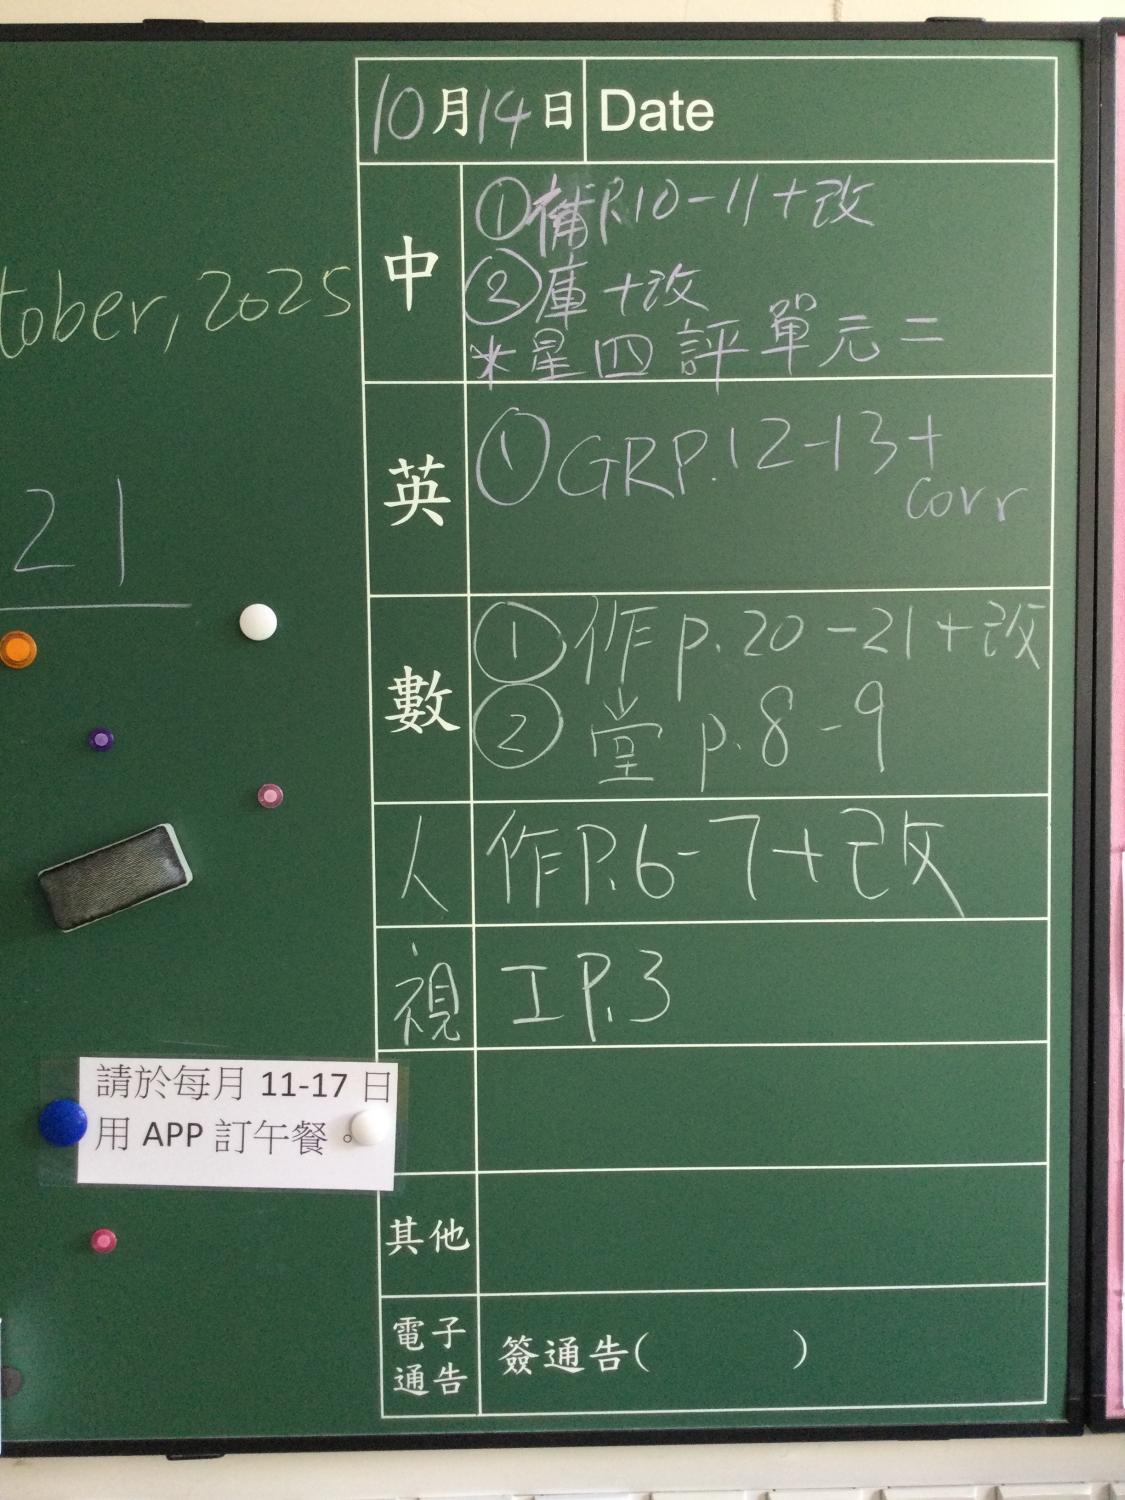 10月14日 Date
tober, 2025
21
中
①補P.10-11+改
②庫+改
*星四評單元二
英
①GRP.12-13+
corr
數
①作p.20-21+改
②堂p.8-9
人 作P.6-7+改
視 工P.3
請於每月 11-17 日
用 APP 訂午餐。
其他
電子
通告
簽通告( )